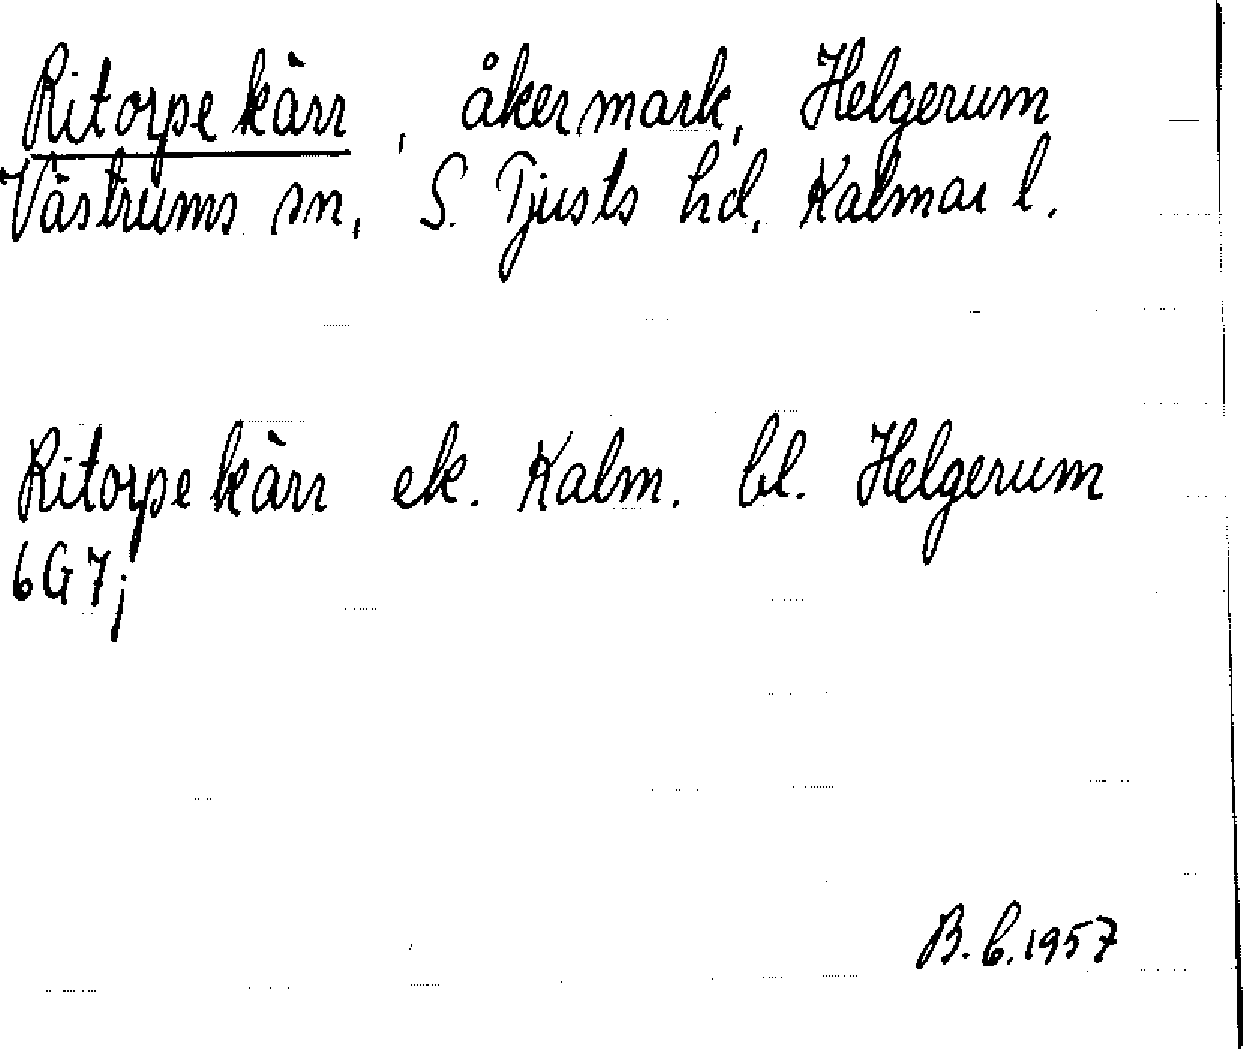 Ritorpekärr, åkermark, Helgerum
Västrums sn, S. Tjusts hd, Kalmar l.
Ritorpekärr ek. Kalm. bl. Helgerum
6G7j
B.b.1957